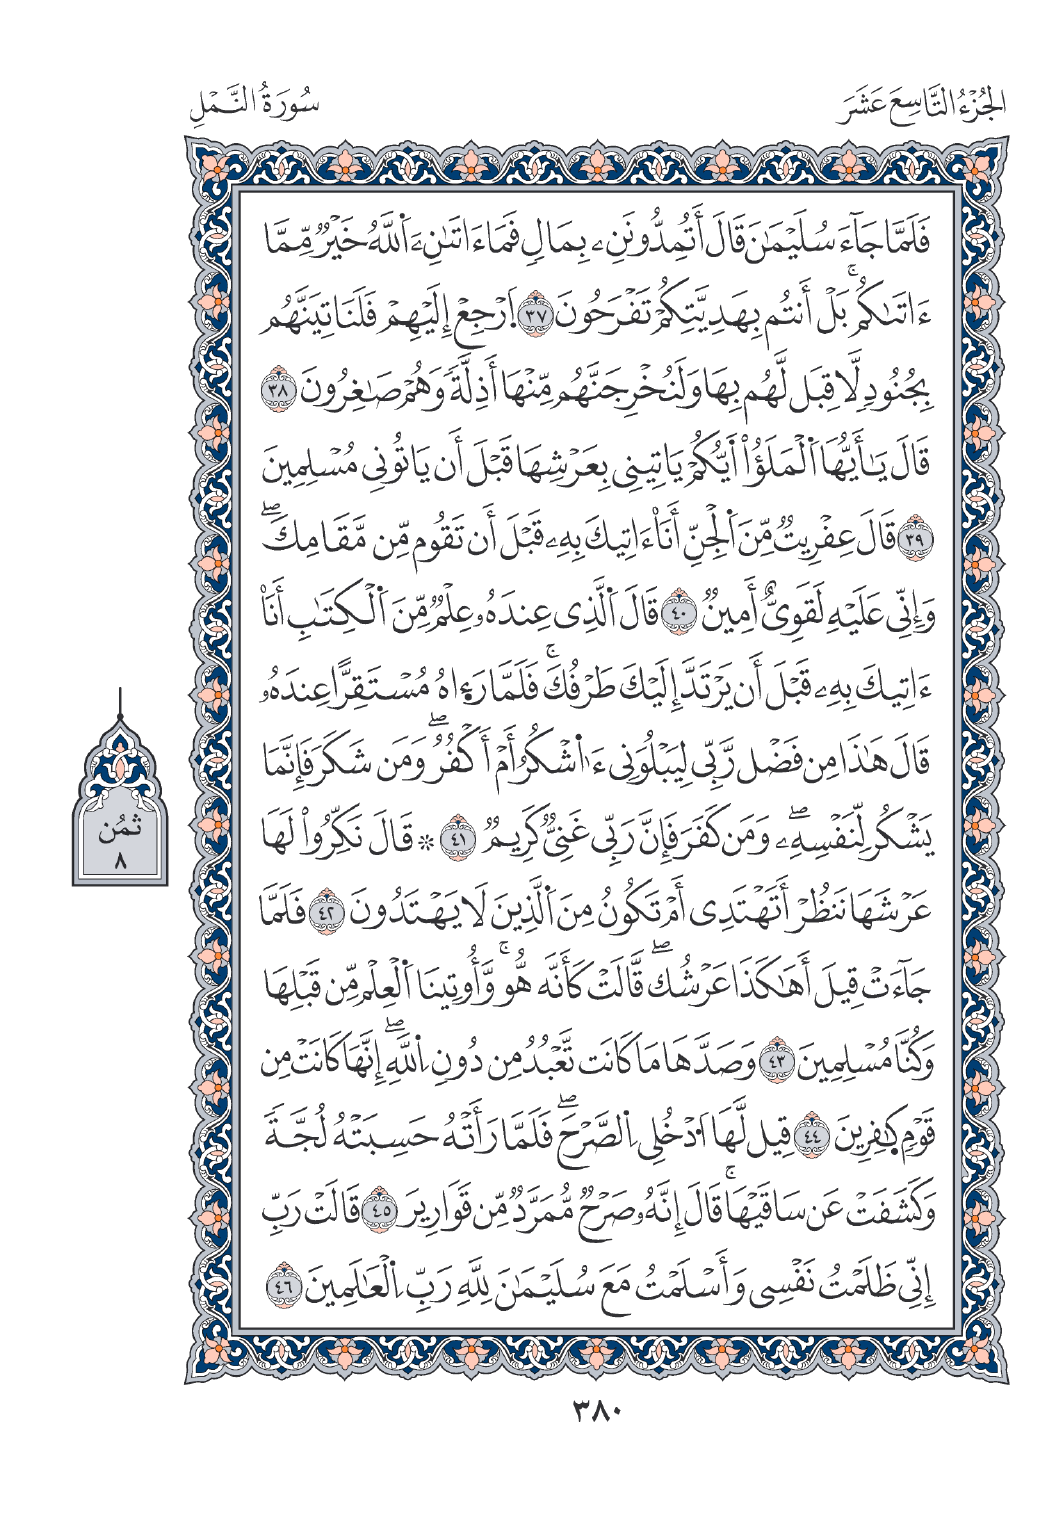 الجُزْءُ التَّاسِعَ عَشَرَ
سُورَةُ النَّمْلِ
فَلَمَّا جَآءَ سُلَيْمَٰنَ قَالَ أَتُمِدُّونَنِۦ بِمَالٍ فَمَآ ءَاتَىٰنِۦَ اَ۬للَّهُ خَيْرٌ مِّمَّآ
ءَاتَىٰكُمۚ بَلْ أَنتُم بِهَدِيَّتِكُمْ تَفْرَحُونَ ٣٧ اَ۪رْجِعْ إِلَيْهِمْ فَلَنَاتِيَنَّهُم
بِجُنُودٍ لَّا قِبَل لَّهُم بِهَا وَلَنُخْرِجَنَّهُم مِّنْهَآ أَذِلَّةً وَهُمْ صَٰغِرُونَ ٣٨
قَالَ يَـٰٓأَيُّهَا اَ۬لْمَلَؤُاْ اَيُّكُمْ يَاتِينِى بِعَرْشِهَا قَبْلَ أَن يَاتُونِى مُسْلِمِينَ
٣٩ قَالَ عِفْرِيتٌ مِّنَ اَ۬لْجِنِّ أَنَا۠ ءَاتِيكَ بِهِۦ قَبْلَ أَن تَقُوم مِّن مَّقَامِكَۖ
وَإِنِّى عَلَيْهِ لَقَوِىٌّ أَمِينٌ ٤٠ قَالَ اَ۬لَّذِى عِندَهُۥ عِلْمٌ مِّنَ اَ۬لْكِتَٰبِ أَنَا۠
ءَاتِيكَ بِهِۦ قَبْلَ أَن يَرْتَدَّ إِلَيْكَ طَرْفُكَۚ فَلَمَّا رَءِاهُ مُسْتَقِرًّا عِندَهُۥ
قَالَ هَٰذَا مِن فَضْل رَّبِّى لِيَبْلُوَنِى ءَا۬شْكُرُ أَمْ أَكْفُرُۖ وَمَن شَكَرَ فَإِنَّمَا
يَشْكُر لِّنَفْسِهِۦۖ وَمَن كَفَرَ فَإِنَّ رَبِّى غَنِىٌّ كَرِيمٌ ٤١ ۞ قَالَ نَكِّرُواْ لَهَا
عَرْشَهَا نَنظُرْ أَتَهْتَدِى أَمْ تَكُونُ مِنَ اَ۬لَّذِينَ لَا يَهْتَدُونَ ٤٢ فَلَمَّا
جَآءَتْ قِيلَ أَهَٰكَذَا عَرْشُكۖ قَّالَتْ كَأَنَّه هُّوَۚ وَّأُوتِينَا اَ۬لْعِلْم مِّن قَبْلِهَا
وَكُنَّا مُسْلِمِينَ ٤٣ وَصَدَّهَا مَا كَانَت تَّعْبُدُ مِن دُونِ اِ۬للَّهِۖ إِنَّهَا كَانَتْ مِن
قَوْمٍ كٰ۪فِرِينَ ٤٤ قِيل لَّهَا اَ۟دْخُلِى اِ۬لصَّرْحَۖ فَلَمَّا رَأَتْهُ حَسِبَتْهُ لُجَّةً
وَكَشَفَتْ عَن سَاقَيْهَاۚ قَالَ إِنَّهُۥ صَرْحٌ مُّمَرَّدٌ مِّن قَوَارِيرَ ٤٥ قَالَتْ رَبِّ
إِنِّى ظَلَمْتُ نَفْسِى وَأَسْلَمْتُ مَعَ سُلَيْمَٰنَ لِلَّهِ رَبِّ اِ۬لْعَٰلَمِينَ ٤٦
ثُمُن
٨
٣٨٠